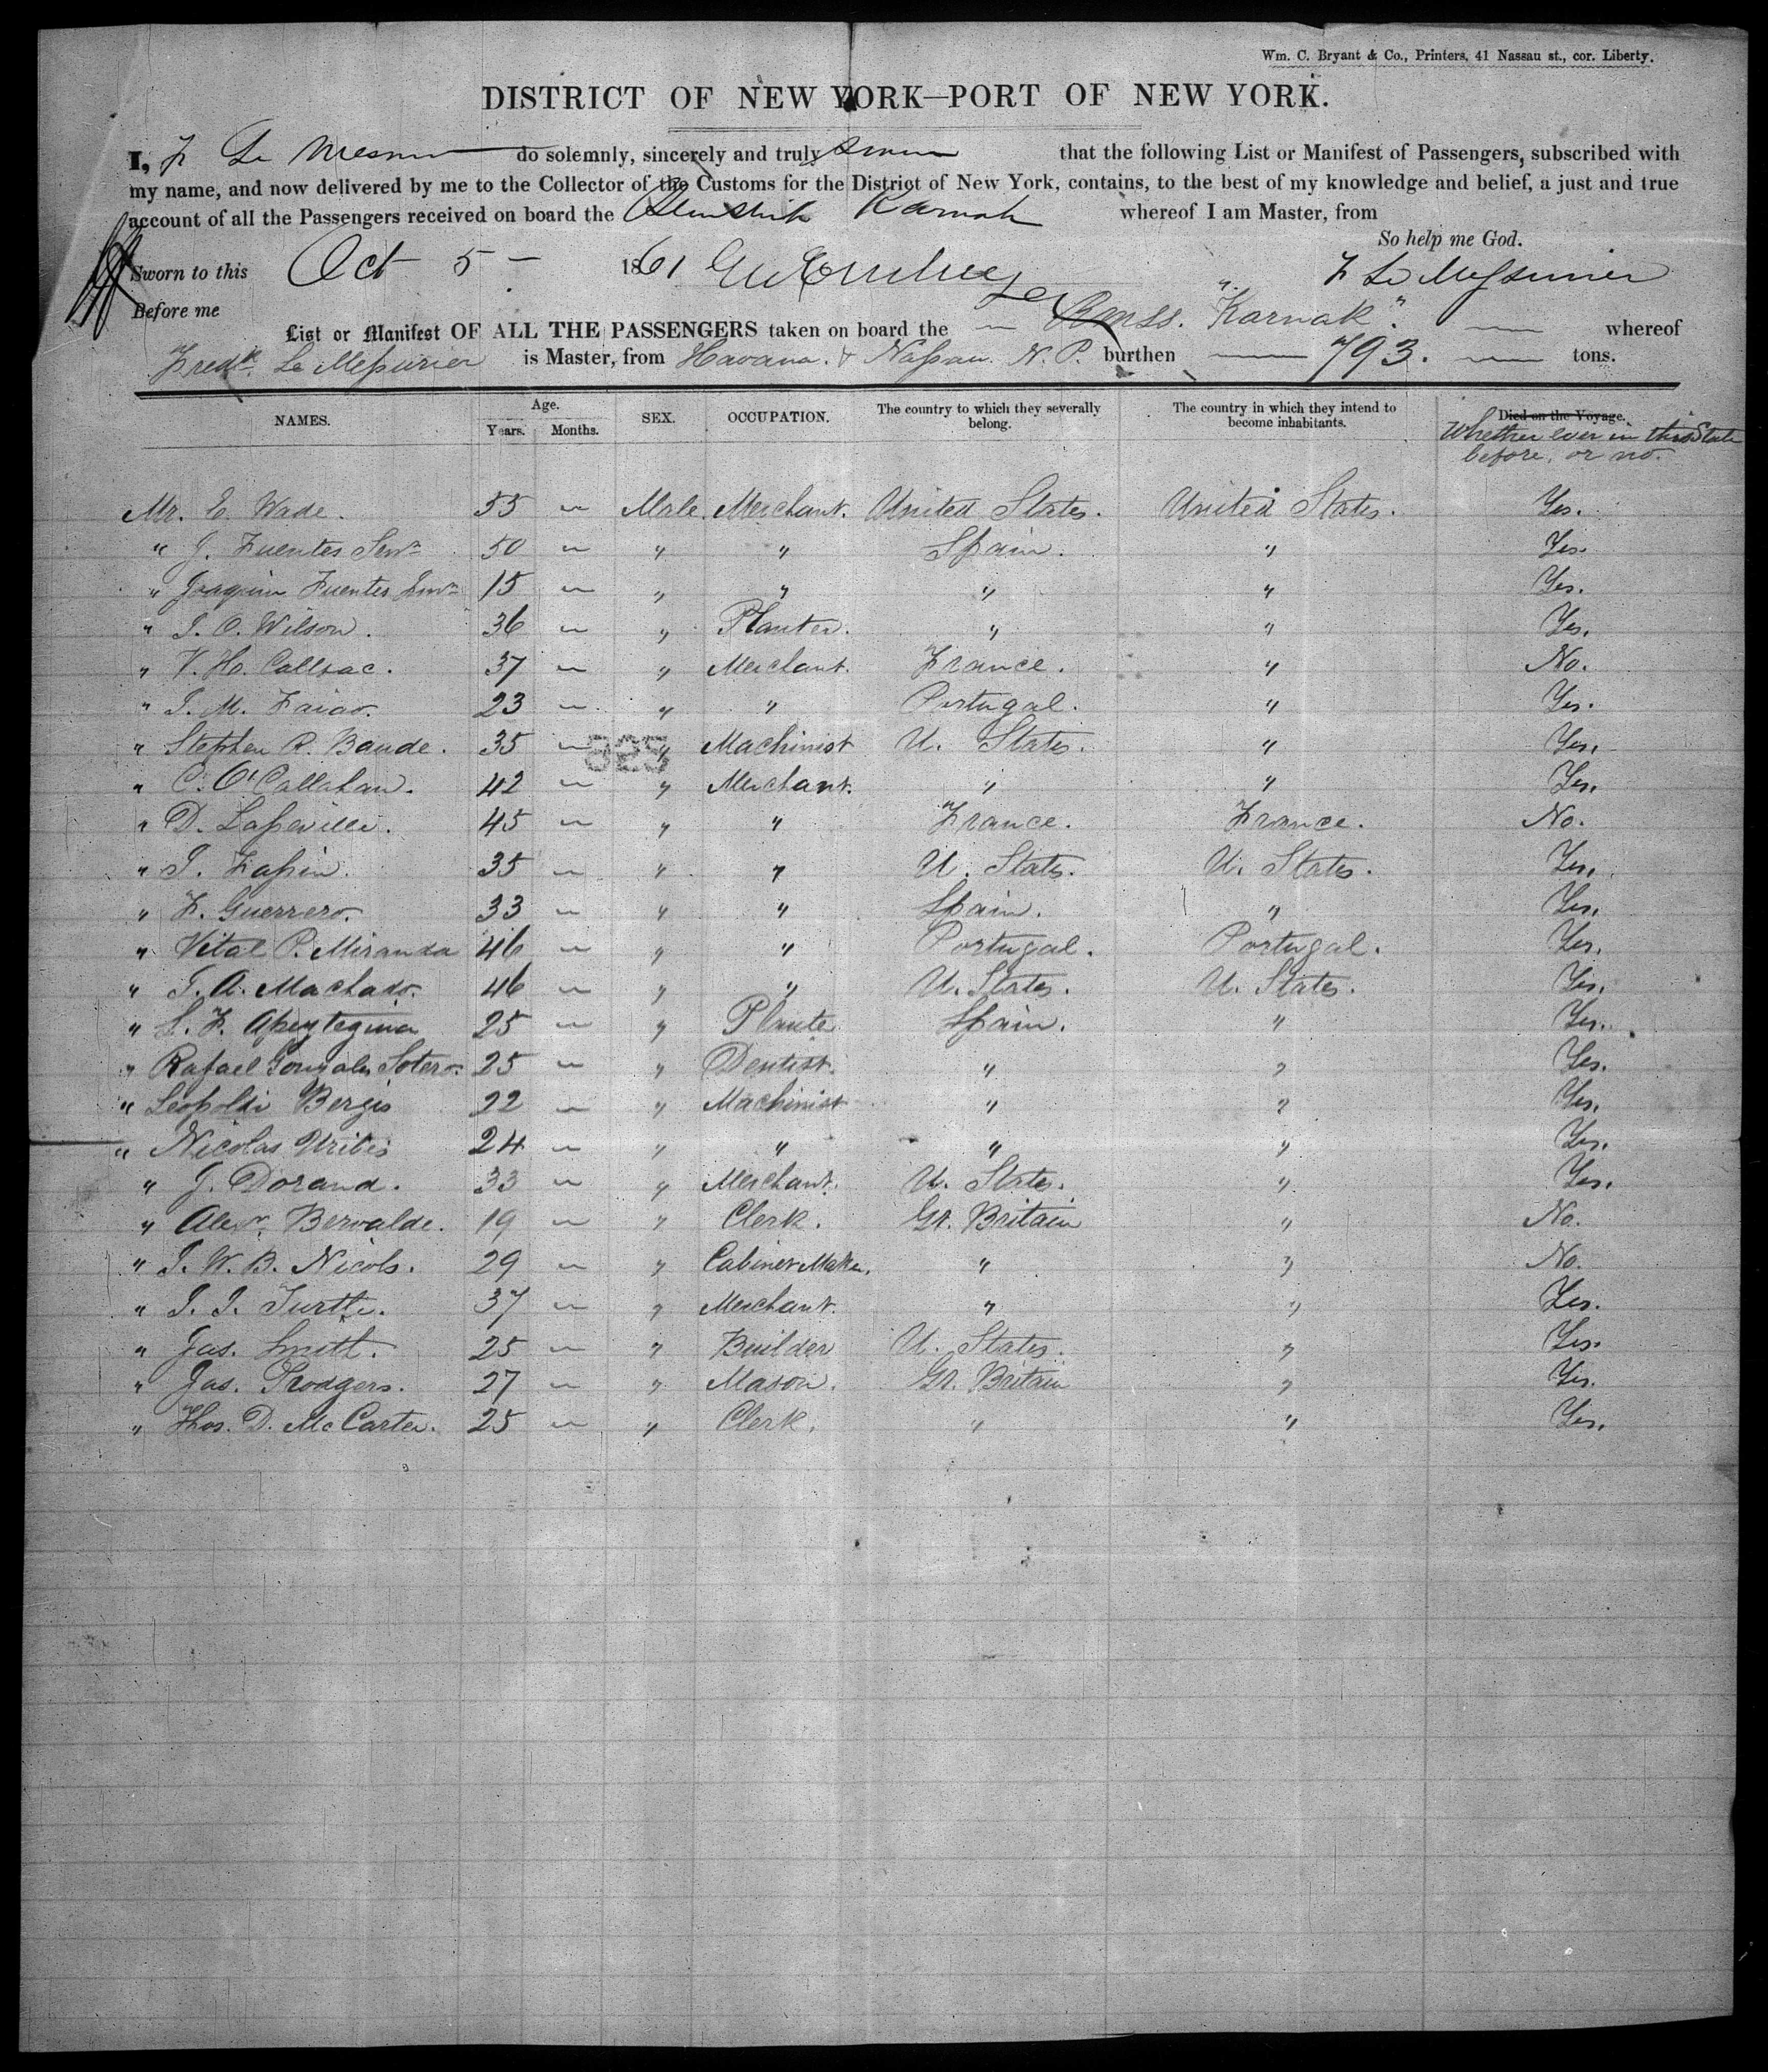 Wm. C. Bryant & Co., Printers, 41 Nassau st., cor. Liberty.
DISTRICT OF NEW YORK—PORT OF NEW YORK.
I, F Le do solemnly, sincerely and truly swear that the following List or Manifest of Passengers, subscribed with
my name, and now delivered by me to the Collector of the Customs for the District of New York, contains, to the best of my knowledge and belief, a just and true
account of all the Passengers received on board the Karnak whereof I am Master, from
So help me God.
Sworn to this Oct 5 — 1861 F Le Messurier
Before me
List or Manifest OF ALL THE PASSENGERS taken on board the — "Karnak". — whereof
Fredk. Le Messurier is Master, from Havana. & Nassau. N. P. burthen — 793. — tons.
NAMES. Age. Years. Months. SEX. OCCUPATION. The country to which they severally belong. The country in which they intend to become inhabitants. Died on the Voyage. Whether ever in this State before, or no.
Mr. E. Wade. 55 — Male. Merchant. United States. United States. Yes.
" J. Fuentes Senr 50 — " " Spain. " Yes.
" Joaquin Fuentes Junr 15 — " " " " Yes.
" J. O. Wilson. 36 — " Planter. " " Yes.
" V. H. Callsac. 37 — " Merchant. France. " No.
" J. M. 23 — " " Portugal. " Yes.
" Stephen R. Baude. 35 — " Machinist U. States. " Yes.
525
" C. O'Callahan. 42 — " Merchant. " " Yes.
" D. 45 — " " France. France. No.
" J. 35 — " " U. States. U. States. Yes.
" F. Guerrero. 33 — " " Spain. " Yes.
" Vital P. Miranda 46 — " " Portugal. Portugal. Yes.
" J. A. Machado. 46 — " " U. States. U. States. Yes.
" 25 — " Plante Spain. " Yes.
" Rafael Gonzales Sotero. 25 — " Dentist. " " Yes.
" Leopoldi Berges 22 — " Machinist " " Yes.
" Nicolas Uribes 24 — " " " " Yes.
" J. Dorand. 33 — " Merchant. U. States. " Yes.
" Alexr. Berwalde. 19 — " Clerk. Gt. Britain " No.
" J. W. B. Nicols. 29 — " Cabinet Maker. " " No.
" J. J. Turtle. 37 — " Merchant. " " Yes.
" Jas. Smith. 25 — " Builder U. States. " Yes.
" Jas. Frodgers. 27 — " Mason. Gt. Britain " Yes.
" Thos. D. McCarter. 25 — " Clerk. " " Yes.